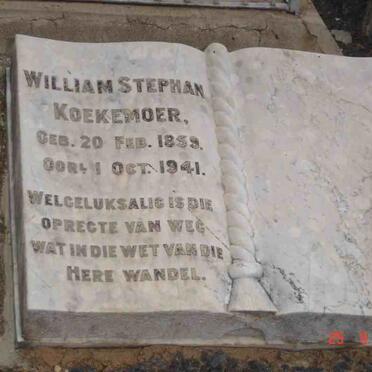 WILLIAM STEPHAN
KOEKEMOER,
GEB. 20 FEB. 1859.
OORL 1 OCT. 1941.
WELGELUKSALIG IS DIE
OPREGTE VAN WEG
WAT IN DIE WET VAN DIE
HERE WANDEL.